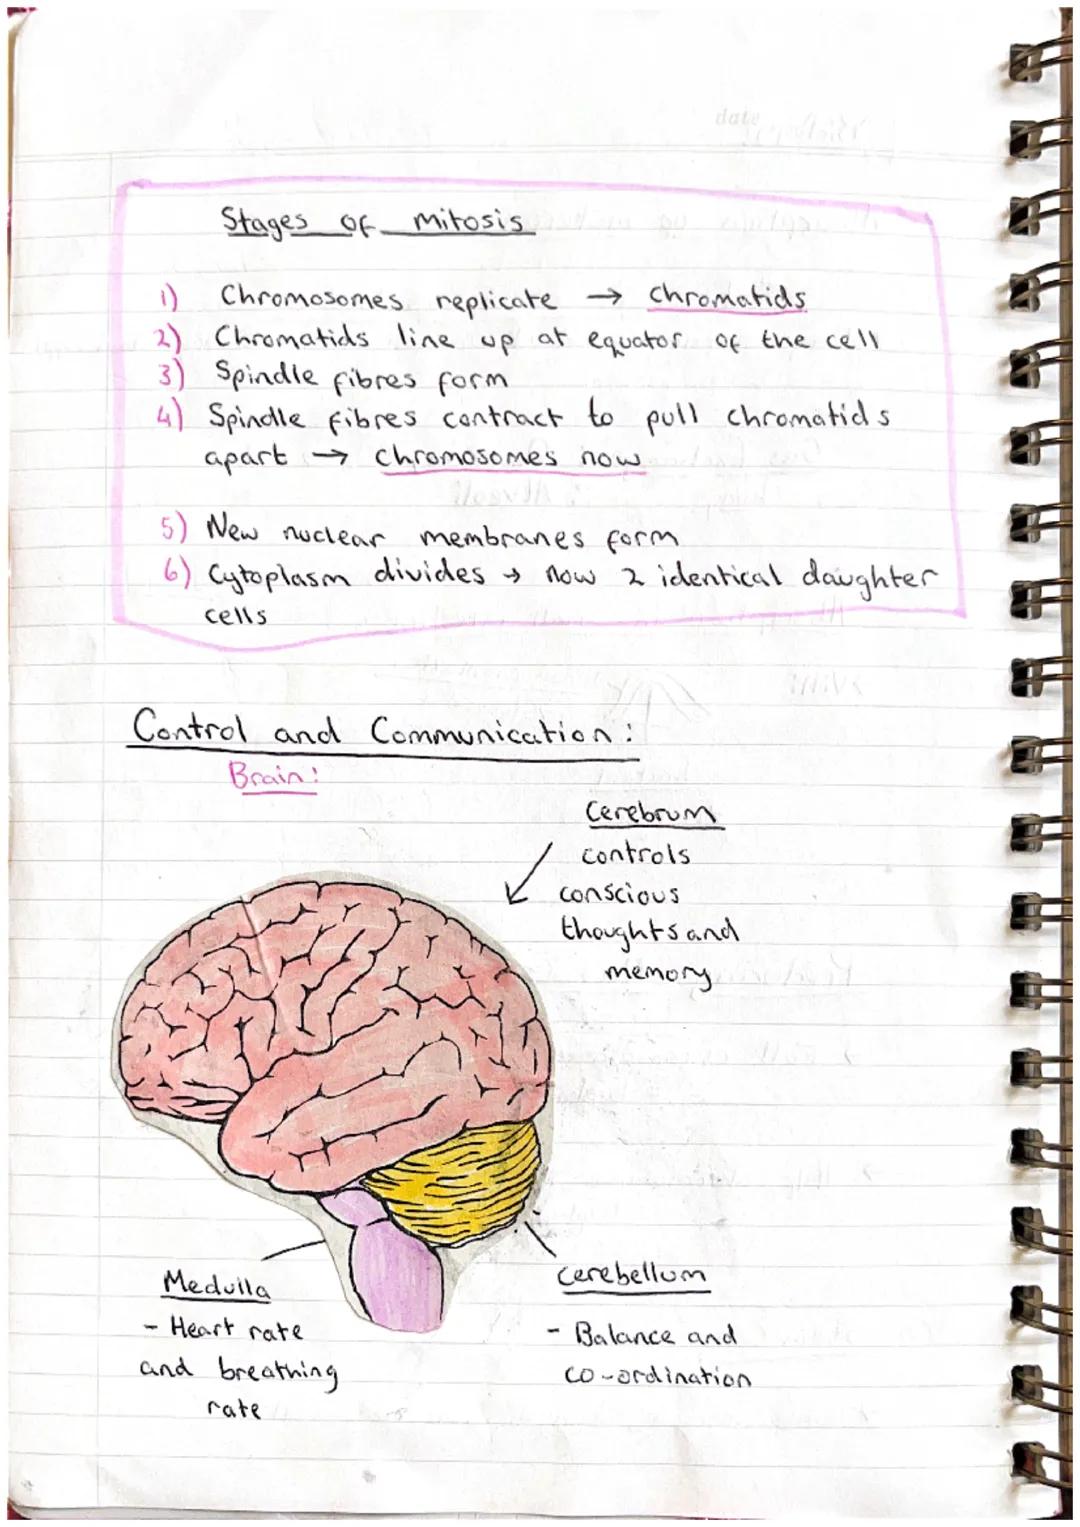 date
Stages of mitosis
1) Chromosomes replicate → Chromatids
2) Chromatids line up at equator of the cell
3) Spindle fibres form
4) Spindle fibres contract to pull chromatids
apart → chromosomes now
5) New nuclear membranes form
6) Cytoplasm divides → now 2 identical daughter
cells
Control and Communication:
Brain:
Cerebrum
controls
conscious
thoughts and
memory
Medulla
- Heart rate
and breathing
rate
Cerebellum
- Balance and
co-ordination